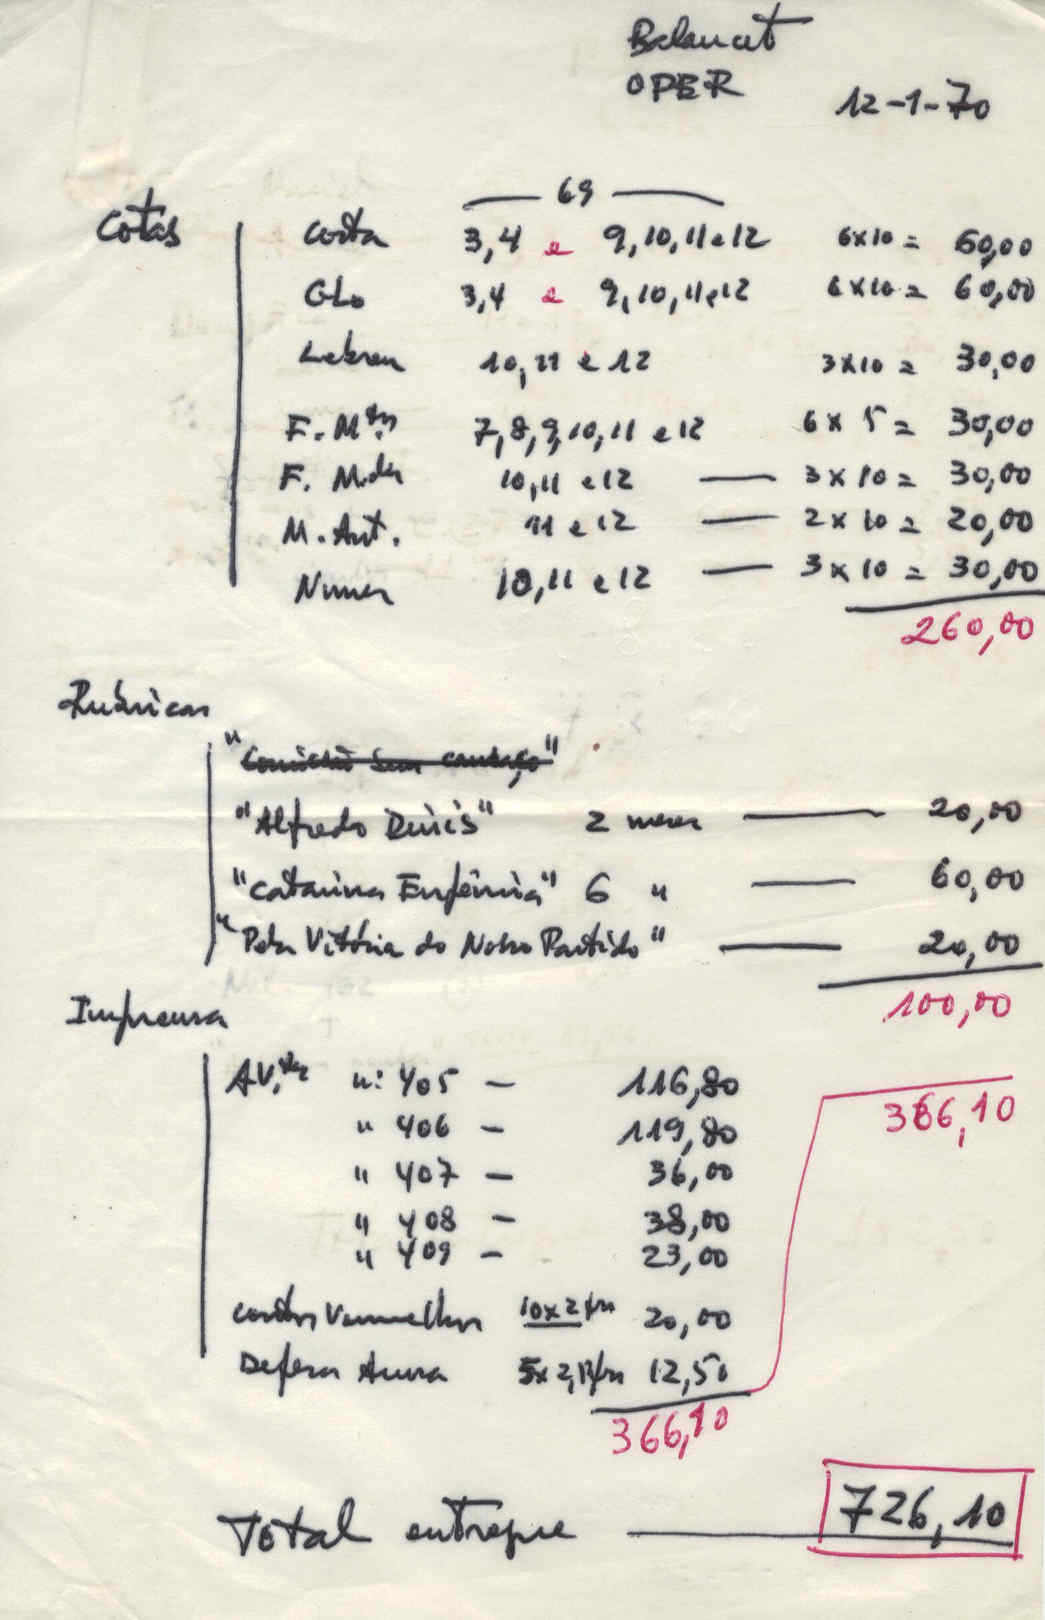 Balancete
OPER
12-1-70
69
Cotas
Costa 3,4 e 9,10,11 e 12 6x10 = 60,00
Glo 3,4 e 9,10,11 e 12 6x10 = 60,00
10,11 e 12 3x10 = 30,00
F. M. 7,8,9,10,11 e 12 6 x 5 = 30,00
F. M. 10,11 e 12 — 3 x 10 = 30,00
M. Ant. 11 e 12 — 2 x 10 = 20,00
Nunes 10,11 e 12 — 3 x 10 = 30,00
260,00
Rubricas
"Alfredo Dinis" 2 meses — 20,00
"Catarina Eufémia" 6 " — 60,00
"Pela Vitória do Nosso Partido" — 20,00
100,00
Imprensa
AV. nº 405 — 116,80
" 406 — 119,80
" 407 — 36,00
" 408 — 38,00
" 409 — 23,00
366,10
Vermelhos 10x2 20,00
Defesa Acusa 5x 12,50
366,10
Total entregue — 726,10